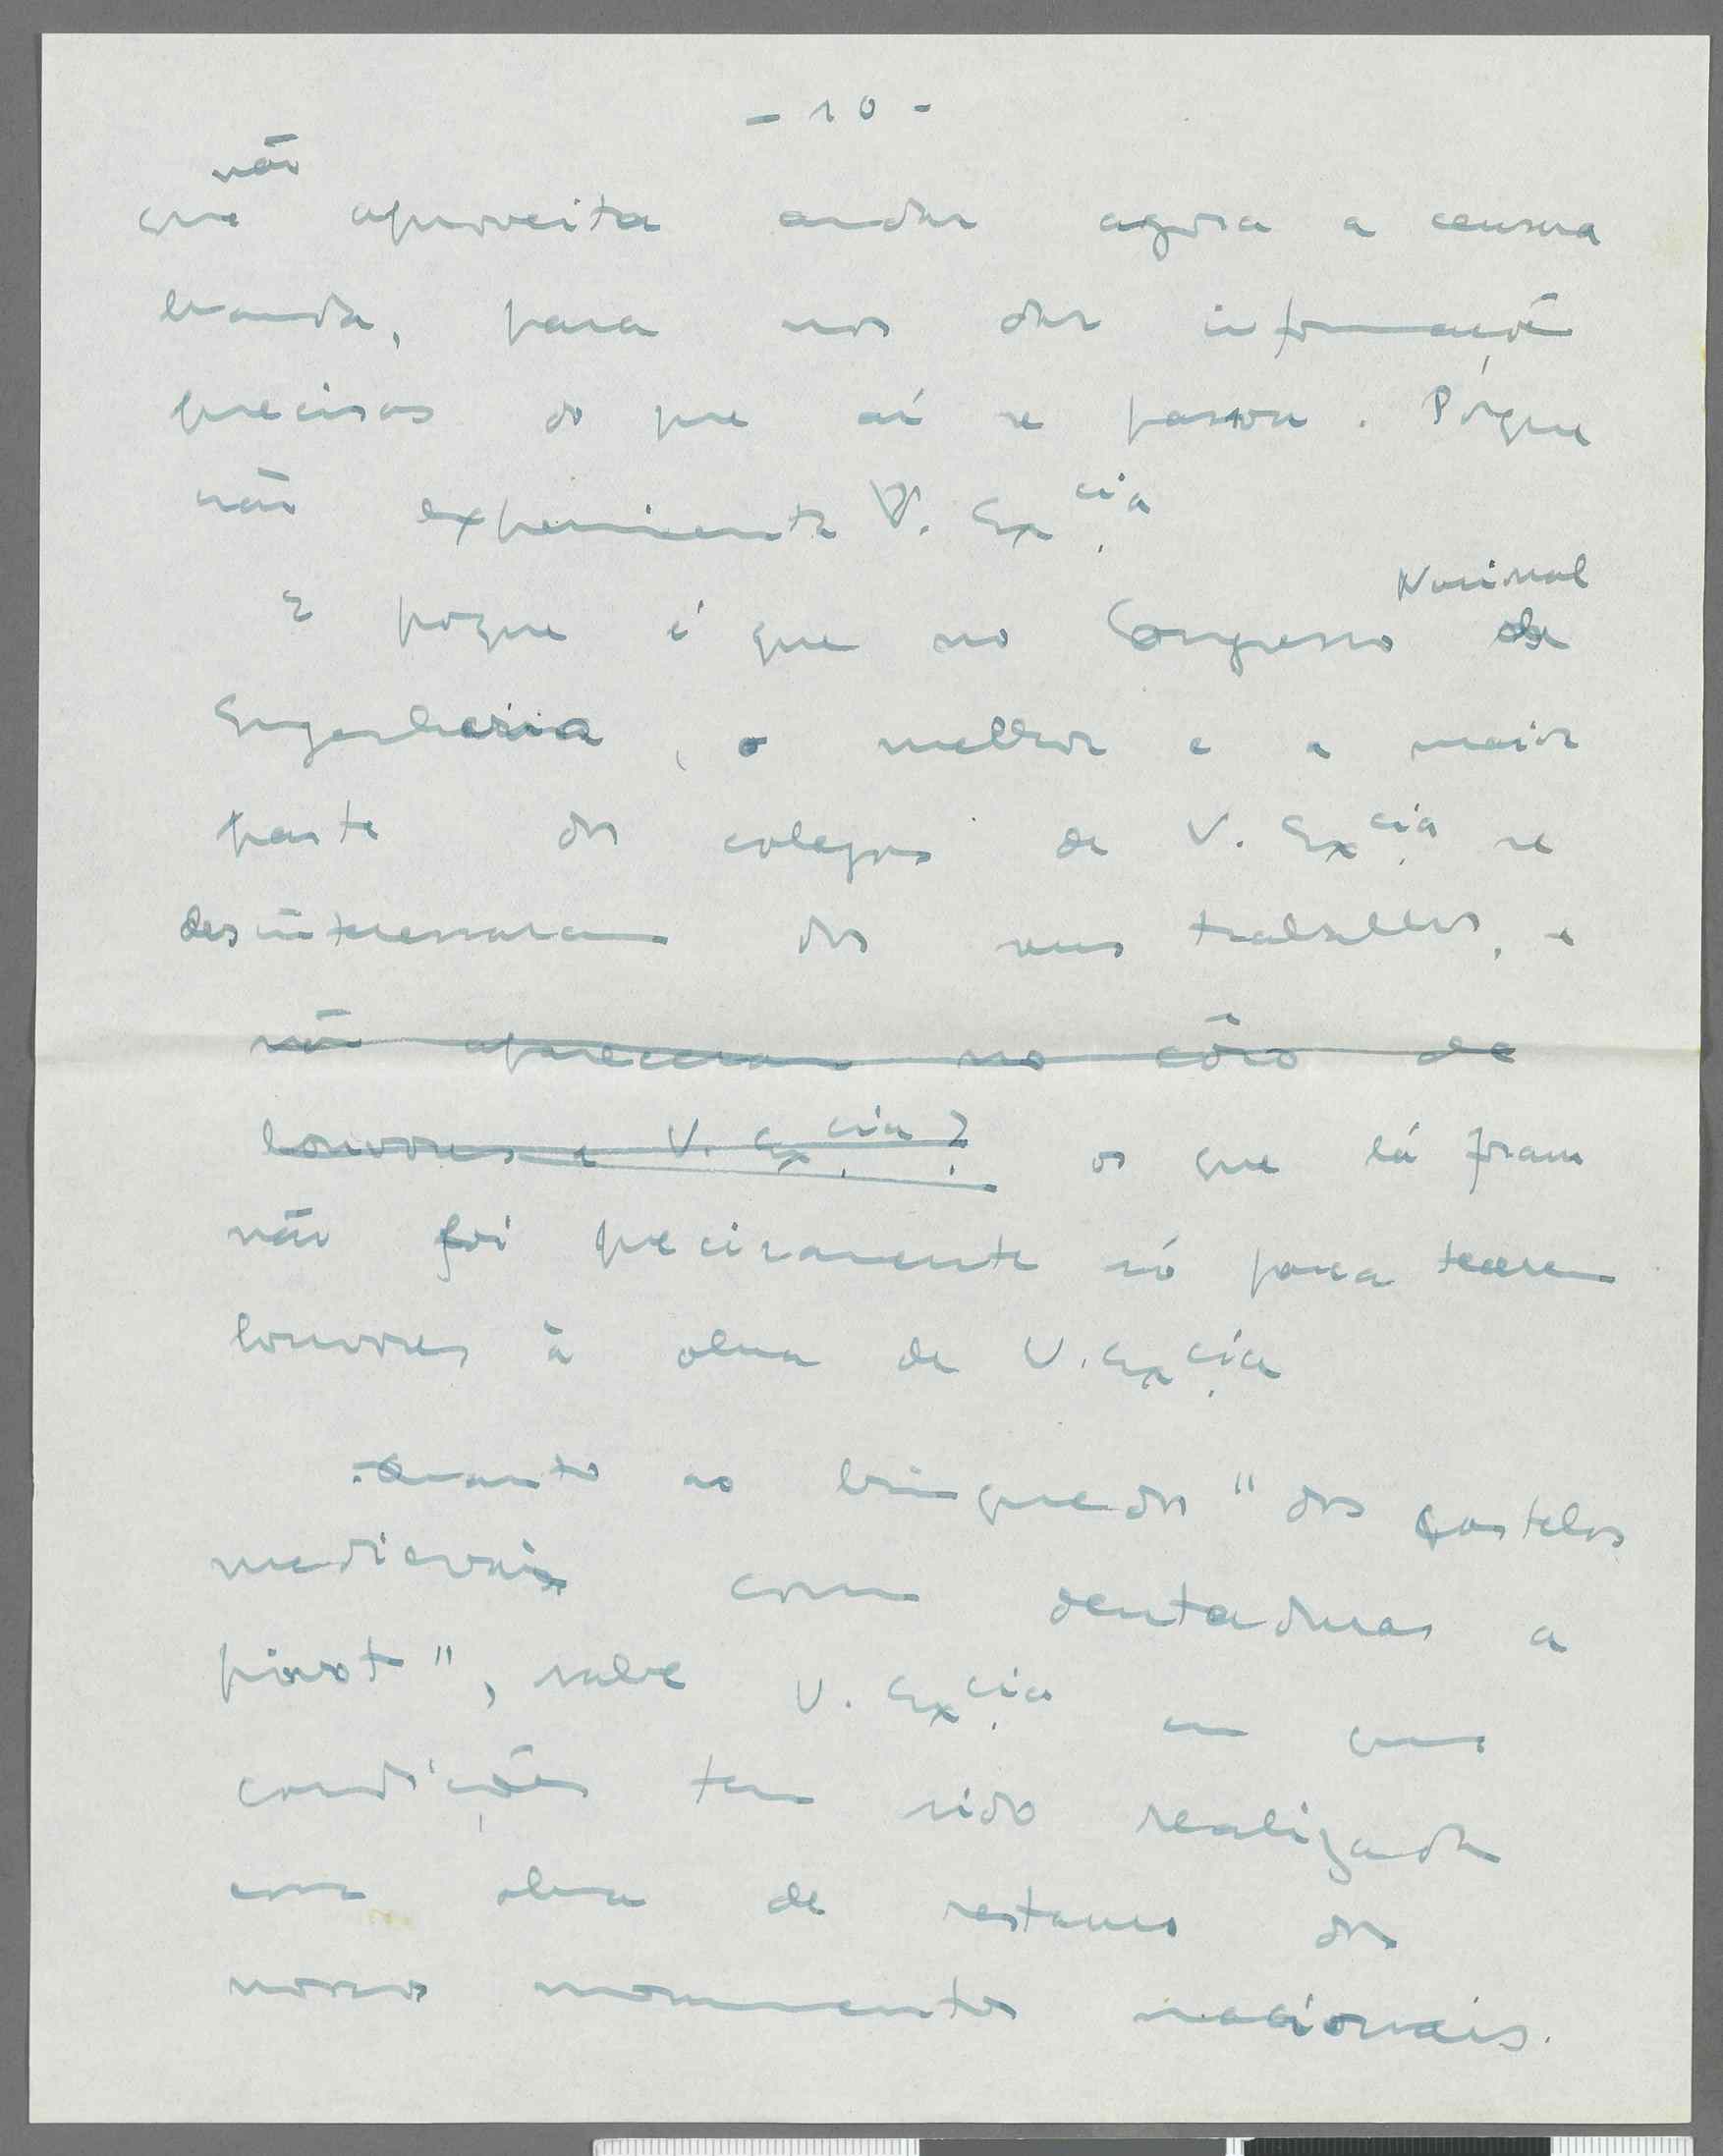 - 10 -
não
que aproveita andar agora a censura
branda, para nos dar informação
precisas do que aí se passou. Pórque
não experimenta V. Excia.
Nacional
E porque é que no Congresso de
Engenharia, o melhor e a maior
parte dos colegas de V. Excia. se
desinteressaram dos seus trabalhos, e
não apareceram no côro de
louvores a V. Excia.? os que lá foram
não foi precisamente só para tecerem
louvores à obra de V. Excia.
Quanto ao brinquedos "dos castelos
medievais com dentaduras a
pivot", sabe V. Excia. em que
condições tem sido realizada
essa obra de restauro dos
nossos monumentos nacionais.